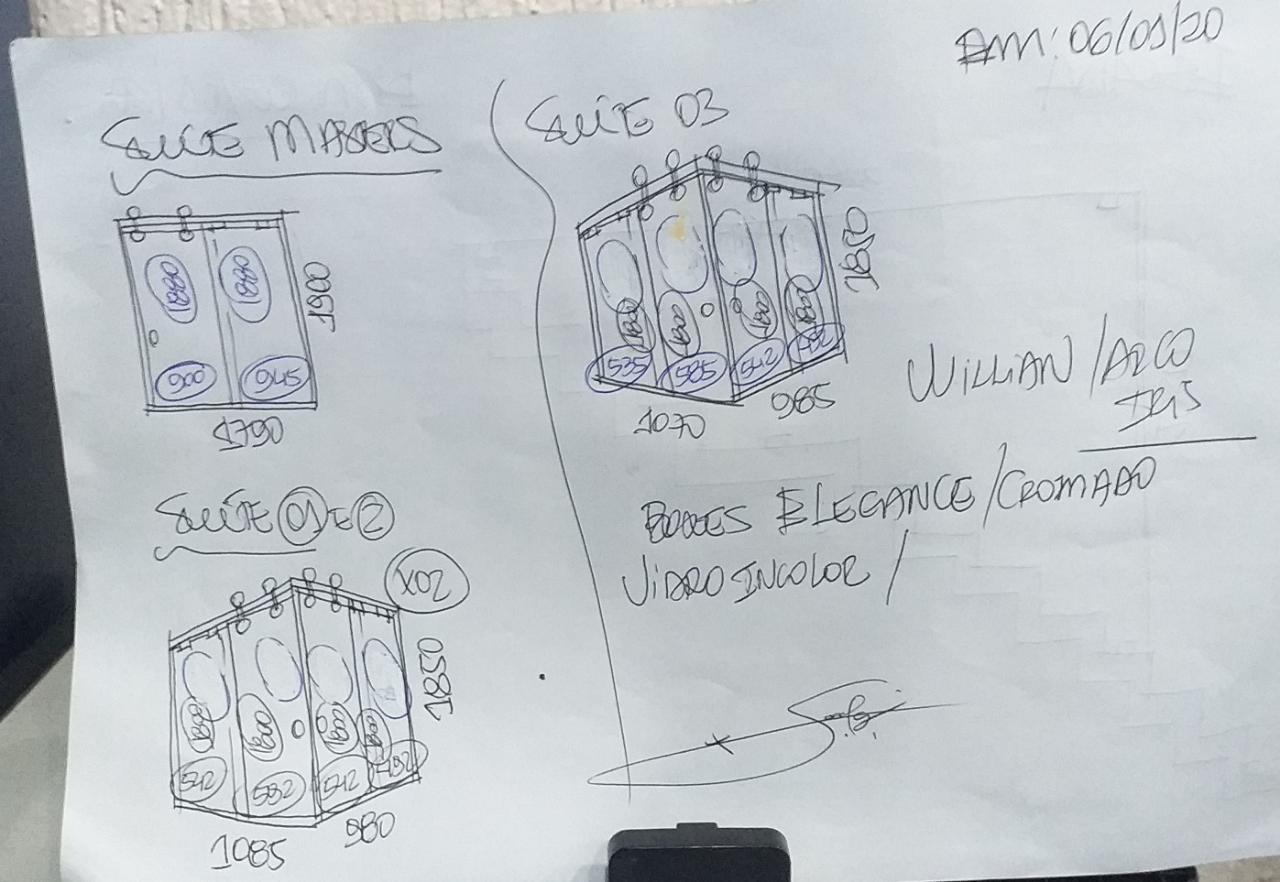 EM: 06/01/20
SUÍTE MASTERS
1880
1880
1900
900
945
1790
SUÍTE 03
1850
1800
1800
1800
1800
535
585
542
492
1070
985
WILLIAN / ARCO
IRIS
BOXES ELEGANCE / CROMADO
VIDRO INCOLOR /
SUÍTE 01 E 2
X02
1850
1800
1800
1800
1800
542
592
542
492
1085
980